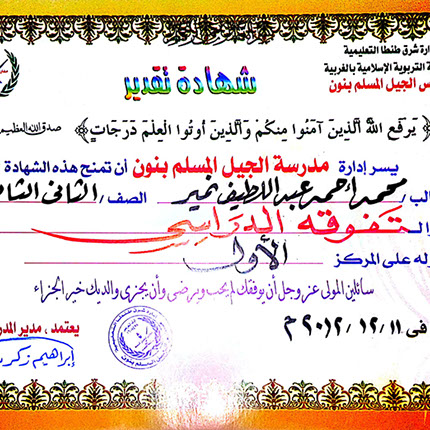 دارة شرق طنطا التعليمية
التربوية الإسلامية بالغربية
س الجيل المسلم بنون
شهادة تقدير
﴿ يَرفَعِ اللَّهُ الَّذِينَ آمَنُوا مِنكُمْ وَالَّذِينَ أُوتُوا الْعِلْمَ دَرَجَاتٍ ﴾ صدق الله العظيم
يسر إدارة مدرسة الجيل المسلم بنون أن تمنح هذه الشهادة
الب / محمد احمد عبد اللطيف نمير الصف / الثانى الثا
تفوقه الدراسى
له على المركز الأول
سائلين المولى عز وجل أن يوفقك لم يحب ويرضى وأن يجزى والديك خير الجزاء
فى ٢٠١٢/١٢/١١ م
يعتمد ، مدير المدر
إبراهيم زكر